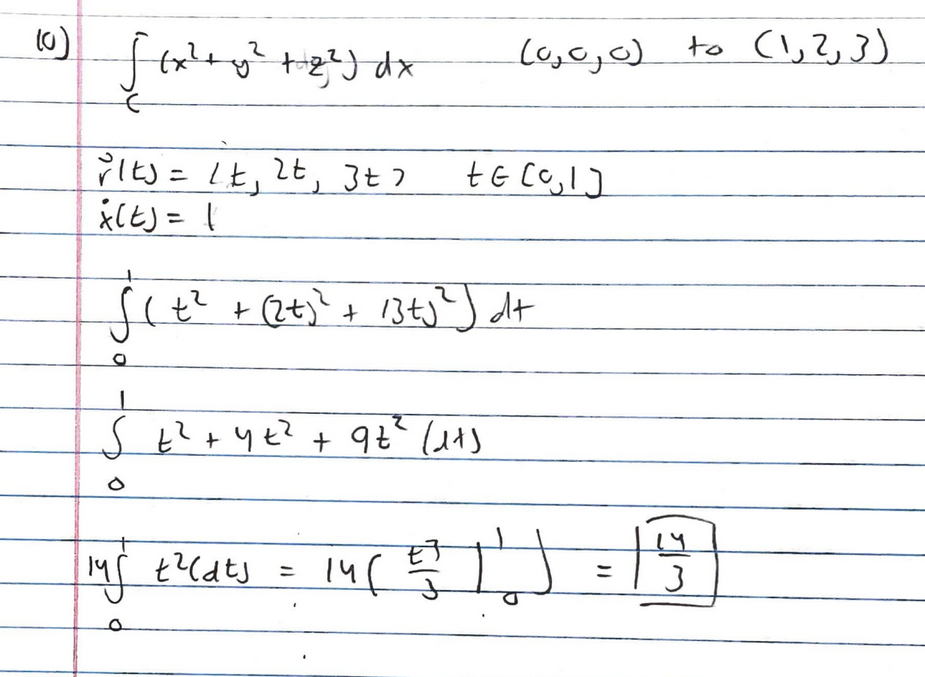 10) ∫_C (x² + y² + z²) dx (0,0,0) to (1,2,3)
r⃗(t) = ⟨t, 2t, 3t⟩ t ∈ [0,1]
ẋ(t) = 1
∫₀¹ (t² + (2t)² + (3t)²) dt
∫₀¹ t² + 4t² + 9t² (dt)
14∫₀¹ t² (dt) = 14( t³/3 |₀¹ ) = 14/3